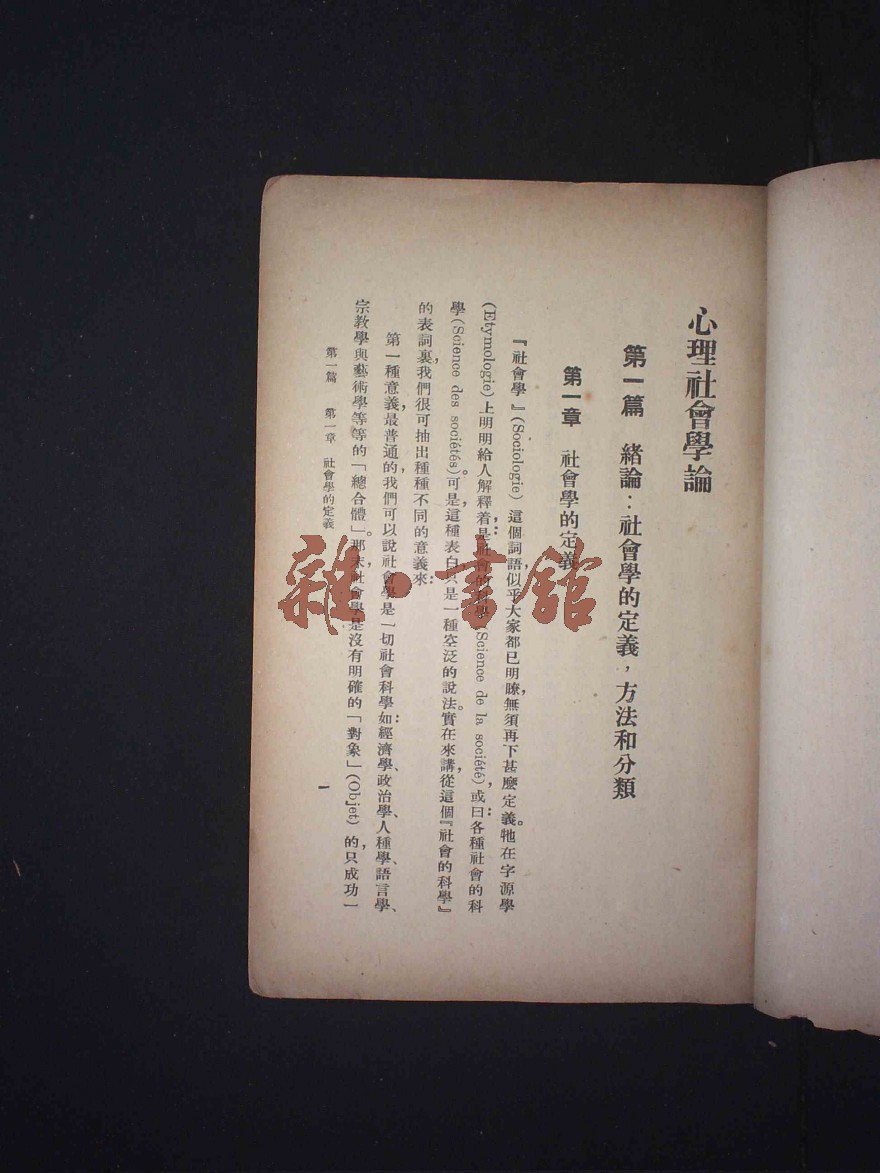 心理社會學論
第一篇 緒論：社會學的定義，方法和分類
第一章 社會學的定義
『社會學』(Sociologie) 這個詞語似乎大家都已明瞭，無須再下甚麼定義。牠在字源學
(Etymologie)上明明給人解釋着：是社會的科學(Science de la société)，或曰：各種社會的科
學(Science des sociétés)。可是，這種表白只是一種空泛的說法。實在來講，從這個『社會的科學』
的表詞裏，我們很可抽出種種不同的意義來：
第一種意義，最普通的，我們可以說社會學是一切社會科學如：經濟學、政治學、人種學、語言學、
宗教學與藝術學等等的「總合體」。那末，社會學是沒有明確的「對象」(Objet) 的，只成功一
第一篇 第一章 社會學的定義
一
雜·書館